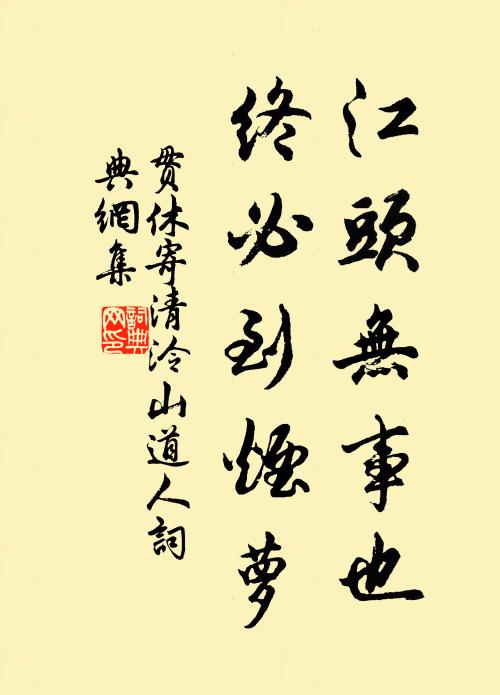 江頭無事也
終必到煙萝
貫休寄清泠山道人詞
典網集
詞典
网印